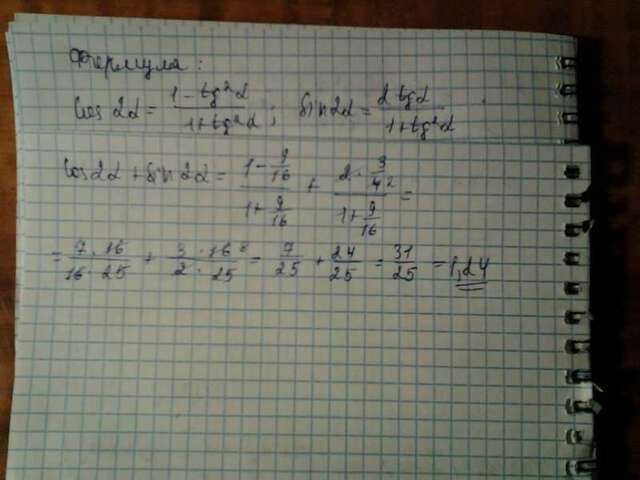 Формула:
cos 2α = (1 - tg²α)/(1 + tg²α); sin 2α = (2 tgα)/(1 + tg²α)
cos 2α + sin 2α = (1 - 9/16)/(1 + 9/16) + (2 · 3/4 2)/(1 + 9/16) =
= (7 · 16)/(16 · 25) + (3 · 16 8)/(2 · 25) = 7/25 + 24/25 = 31/25 = 1,24